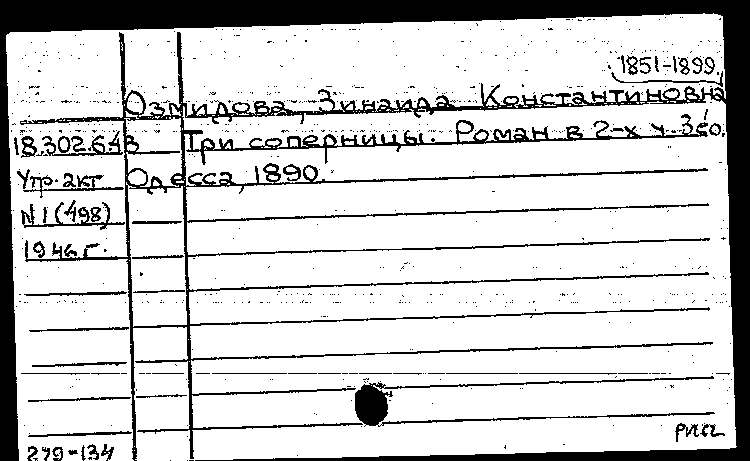 1851-1899
Озмидова, Зинаида Константиновна
18.302.6.43 Три соперницы. Роман в 2-х ч.
Утр. акт Одесса, 1890.
N 1 (498)
1946 г.
279-134